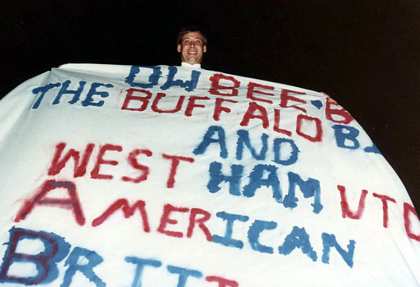 OW BEE-B
THE BUFFALO BI
AND
WEST HAM UTD
AMERICAN
BRIT